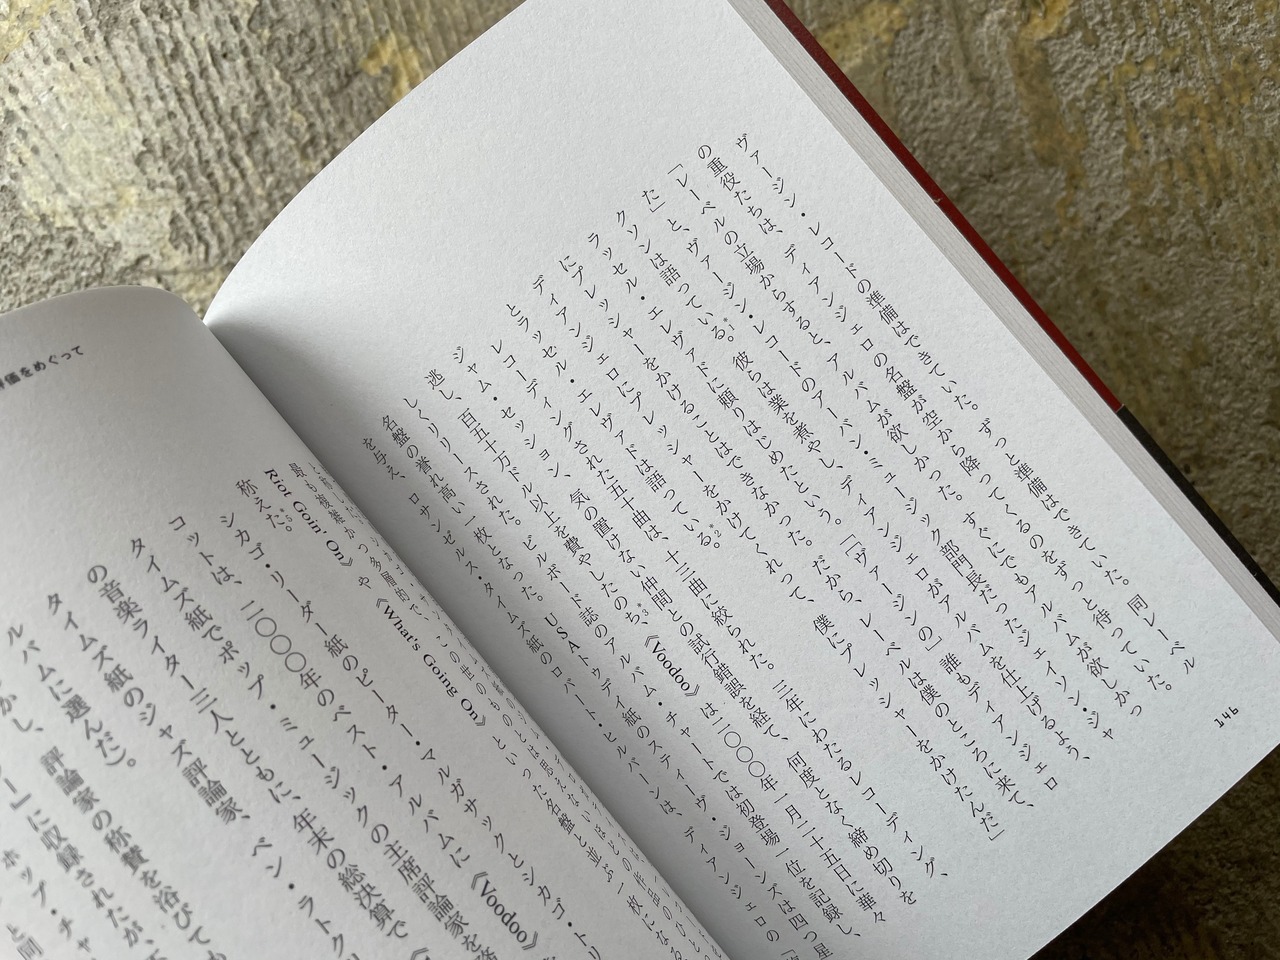 ヴァージン・レコードの準備はできていた。ずっと準備はできていた。同レーベル
の重役たちは、ディアンジェロの名盤が空から降ってくるのをずっと待っていた。
「レーベルの立場からすると、アルバムが欲しかった。すぐにでもアルバムが欲しかっ
た」と、ヴァージン・レコードのアーバン・ミュージック部門長だったジェイソン・ジャ
クソンは語っている。*1 彼らは業を煮やし、ディアンジェロがアルバムを仕上げるよう、
ラッセル・エレヴァドに頼りはじめたという。「ヴァージンの」誰もディアンジェロ
にプレッシャーをかけることはできなかった。だから、レーベルは僕のところに来て、
ディアンジェロにプレッシャーをかけてくれって、僕にプレッシャーをかけたんだ」
とラッセル・エレヴァドは語っている。*2
レコーディングされた五十曲は、十三曲に絞られた。三年にわたるレコーディング、
ジャム・セッション、気の置けない仲間との試行錯誤を経て、何度となく締め切りを
逃し、百五十万ドル以上を費やしたのち、*3《Voodoo》は二〇〇〇年一月二十五日に華々
しくリリースされた。ビルボード誌のアルバム・チャートでは初登場一位を記録し、
名盤の誉れ高い一枚となった。USAトゥデイ紙のスティーヴ・ジョーンズは四つ星
を与え、ロサンゼルス・タイムズ紙のロバート・ヒルバーンは、ディアンジェロの
146
をめぐって
Riot Goin' On》や《What's Going On》といった名盤と並ぶ一枚になる
称えた。*5
シカゴ・リーダー紙のピーター・マルガサックとシカゴ・トリ
コットは、二〇〇〇年のベスト・アルバムに《Voodoo》
タイムズ紙でポップ・ミュージックの主席評論家を務
の音楽ライター三人とともに、年末の総決算で
タイムズ紙のジャズ評論家、ベン・ラトク
ルバムに選んだ）。
かし、評論家の称賛を浴びても
ー」に収録されたが、
ホップ・チャ
と同